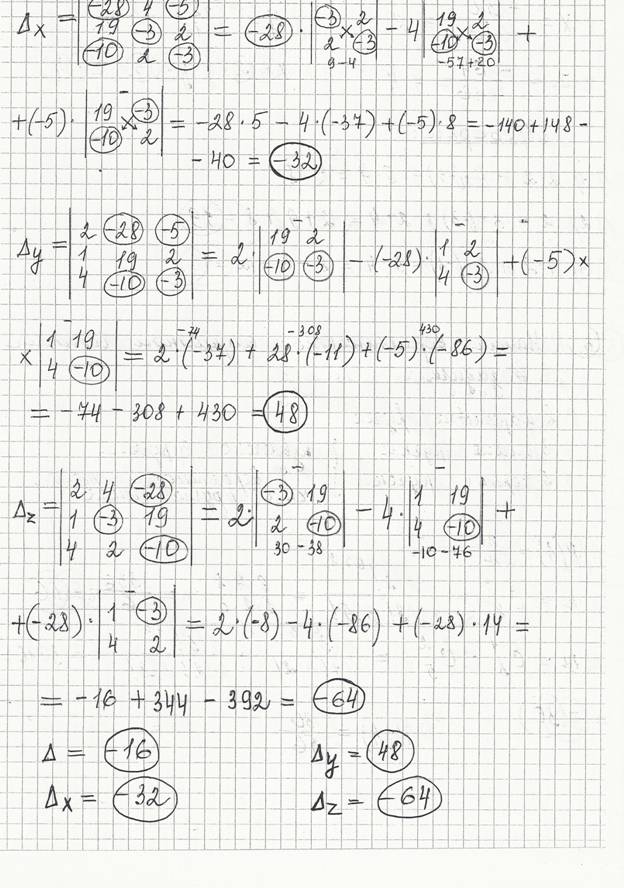 Δx = |-28 4 -5; 19 -3 2; -10 2 -3| = -28 · |-3 2; 2 -3| - 4 |19 2; -10 -3| +
9-4 -57+20
+(-5) · |19 -3; -10 2| = -28·5 - 4·(-37) + (-5)·8 = -140 + 148 -
- 40 = -32
Δy = |2 -28 -5; 1 19 2; 4 -10 -3| = 2 · |19 2; -10 -3| - (-28) · |1 2; 4 -3| + (-5) ×
-74 -308 430
× |1 19; 4 -10| = 2·(-37) + 28·(-11) + (-5)·(-86) =
= -74 - 308 + 430 = 48
Δz = |2 4 -28; 1 -3 19; 4 2 -10| = 2· |-3 19; 2 -10| - 4 · |1 19; 4 -10| +
30 - 38 -10 - 76
+(-28) · |1 -3; 4 2| = 2·(-8) - 4·(-86) + (-28)·14 =
= -16 + 344 - 392 = -64
Δ = -16 Δy = 48
Δx = -32 Δz = -64